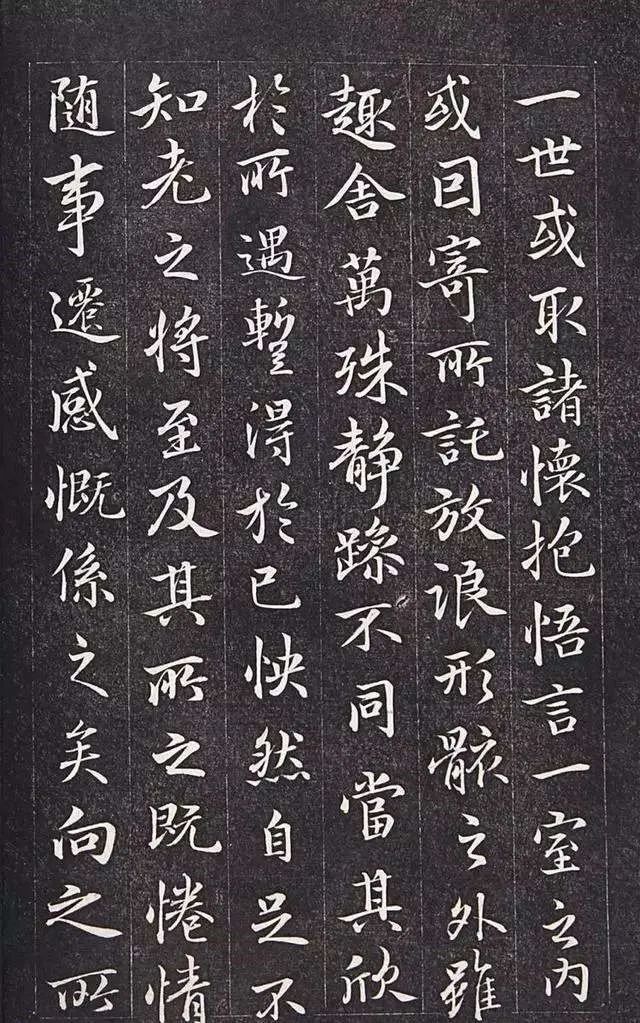 一世或取諸懷抱悟言一室之内
或因寄所託放浪形骸之外雖
趣舍萬殊静躁不同當其欣
於所遇暫得於己怏然自足不
知老之将至及其所之既惓情
随事遷感慨係之矣向之所